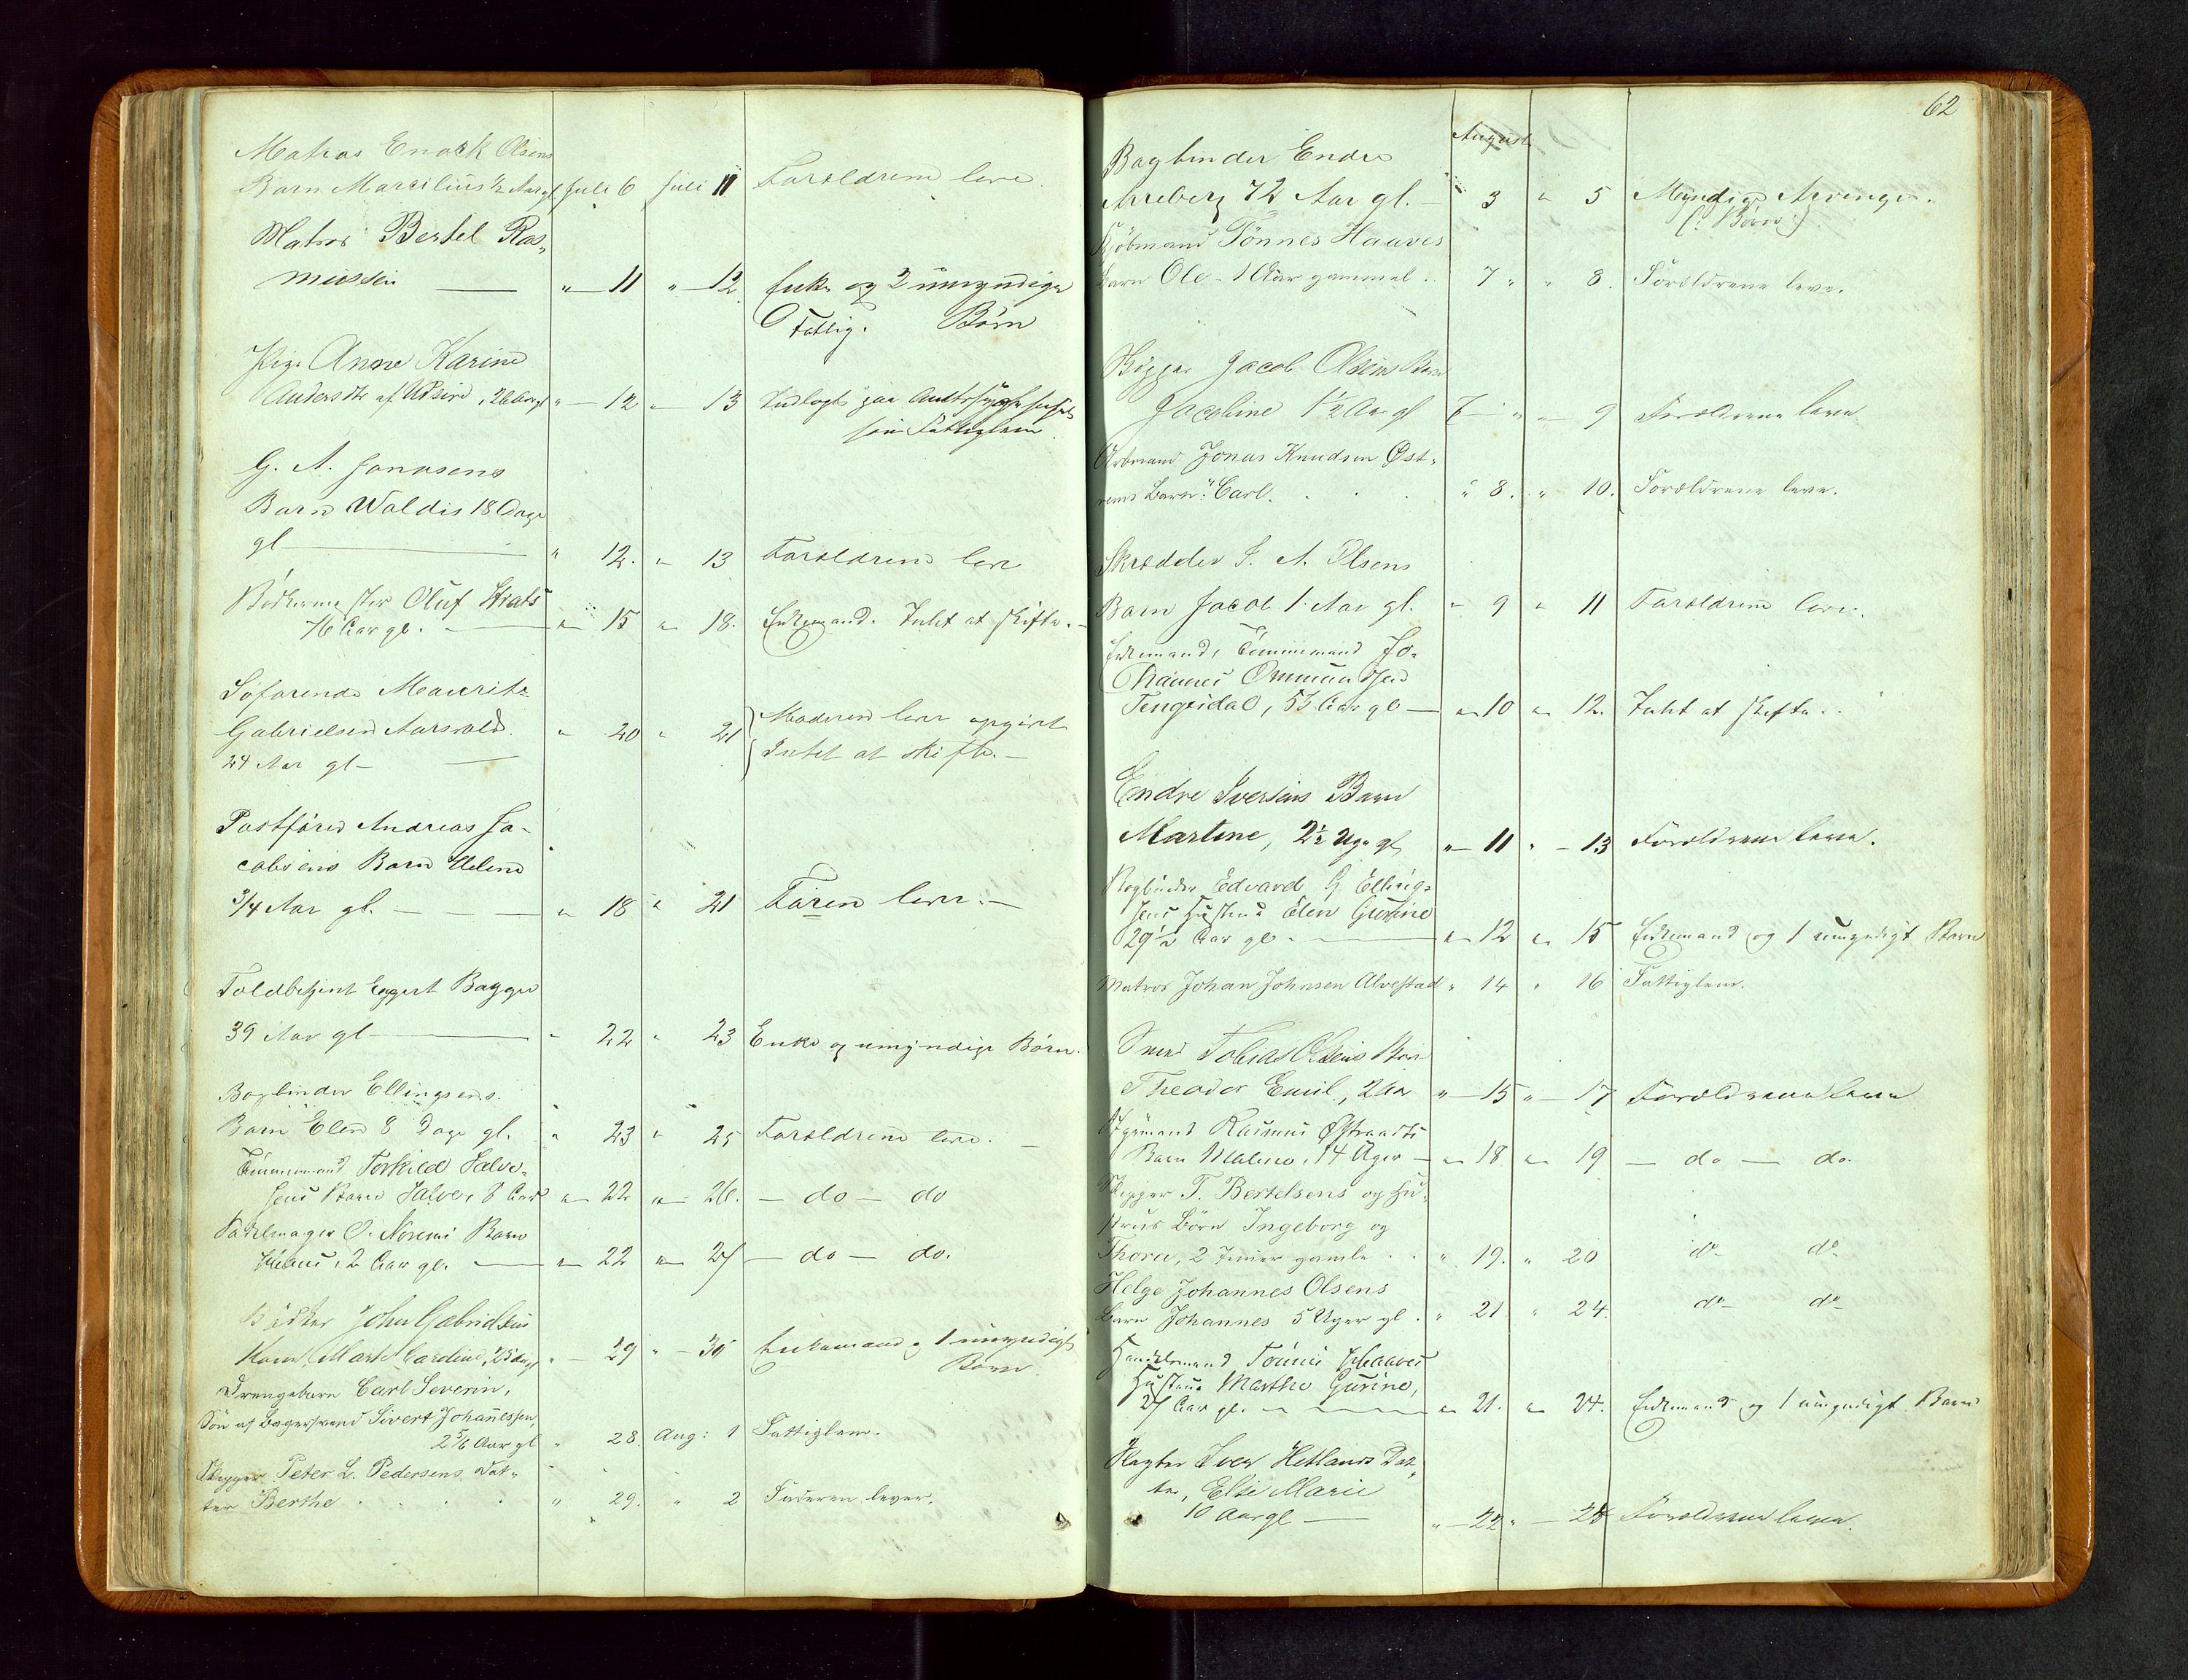 Matros Enock Olsens
Barn Marcilius ½ Aar gl. Juli 6 Juli 11 Forældrene leve.
Matros Bertel Ras-
mussen — " — 11 " — 12. Enke og 2 umyndige
Fattig. Børn
Pige Anne Karine
Andersdtr af Udsire, 26 Aar gl " — 12 " — 13 Indlagt paa Amtssygehuset
som Fattiglem
G. A. Jonasens
Barn Waldis 18 Dage
gl — " 12. " 13 Forældrene leve
Bødkermester Oluf
76 Aar gl. — " 15 " 18. Enkemand. Intet at skifte. —
Søfarende Mauritz
Gabrielsen Aarsvold. " 20 " 21 Moderen lever opgivet
24 Aar gl — Intet at skifte. —
Postfører Andreas Ja-
cobsens Barn Helene
3/4 Aar gl. — — — " 18 " 21 Faren lever. —
Toldbetjent Eggert Bagge
39 Aar gl — " 22 " 23 Enke og umyndige Børn.
Bogbinder Ellingsens
Barn Elen 8 Dage gl. " 23 " 25 Forældrene leve. —
Tømmermand Torkild Salve-
sens Barn Salve, 8 Aar " 22 " 26. — do — do
O. Norems Barn
2 Aar gl. — " 22 " 27 — do — do.
Bødker John Gabrielsens
Kone, Marte Cardine, " — 29 " — 30 Enkemand og 1 umyndigt
Barn
Drengebarn Carl Severin,
Søn af Bagersvend Sivert Johannessen,
2 5/6 Aar gl " 28. Aug: 1 Fattiglem.
Skipper Peter L. Pedersens Dat-
ter Berthe . . . . " 29. " 2 Faderen lever.
62
August
Bogbinder Endre
Arreberg 72 Aar gl. — " 3 " 5 Myndige Arvinger.
(: Børn :)
Kjøbmand Tønnes Haaves
Barn Ole - 1 Aar gammel. 7 " " 8. Forældrene leve.
Skipper Jacob Olsens Barn
Jacobine 1½ Aar gl 7 — " " — 9 Forældrene leve
Arbmand Jonas Knudsen Øst-
rems Barn: Carl. . . . " 8. " 10. Forældrene leve.
Skrædder S. A. Olsens
Barn Jacob 1 Aar gl. " 9 " 11 Forældrene leve.
Enkemand, Tømmermand Jo-
hannes Ommundsen
Tengesdal, 53 Aar gl — " 10 " 12. Intet at skifte. .
Endre Iversens Barn
Martine, 2½ Uge gl " — 11 " — 13 Forældrene leve.
Bogbinder Edvard G Elling-
sens Hustru Elen Gurine
29½ Aar gl. — " 12 " 15 Enkemand og 1 umyndigt Barn
Matros Johan Johnsen Alvestad " 14 " 16 Fattiglem.
Smed Tobias Olsens Barn
Theodor Emil, 2 Aar " — 15 " — 17 Forældrene leve
Rasmus Østraadts
Barn Malene, 14 Uger — " 18 " 19 — do — do.
Skipper T. Bertelsens og Hu-
strus Børn Ingeborg og
Thora, 2 Timer gamle . . " 19. " 20 do do
Helge Johannes Olsens
Barn Johannes 5 Uger gl. " 21 " 24. do do
Handelsmand Tønnes Haaves
Hustru Marthe Gurine,
27 Aar gl. — " 21. " 24. Enkemand og 1 umyndigt Barn
Slagter Iver Hetlands Dat-
ter, Else Marie
10 Aar gl — " — 22 " — 24 Forældrene leve.